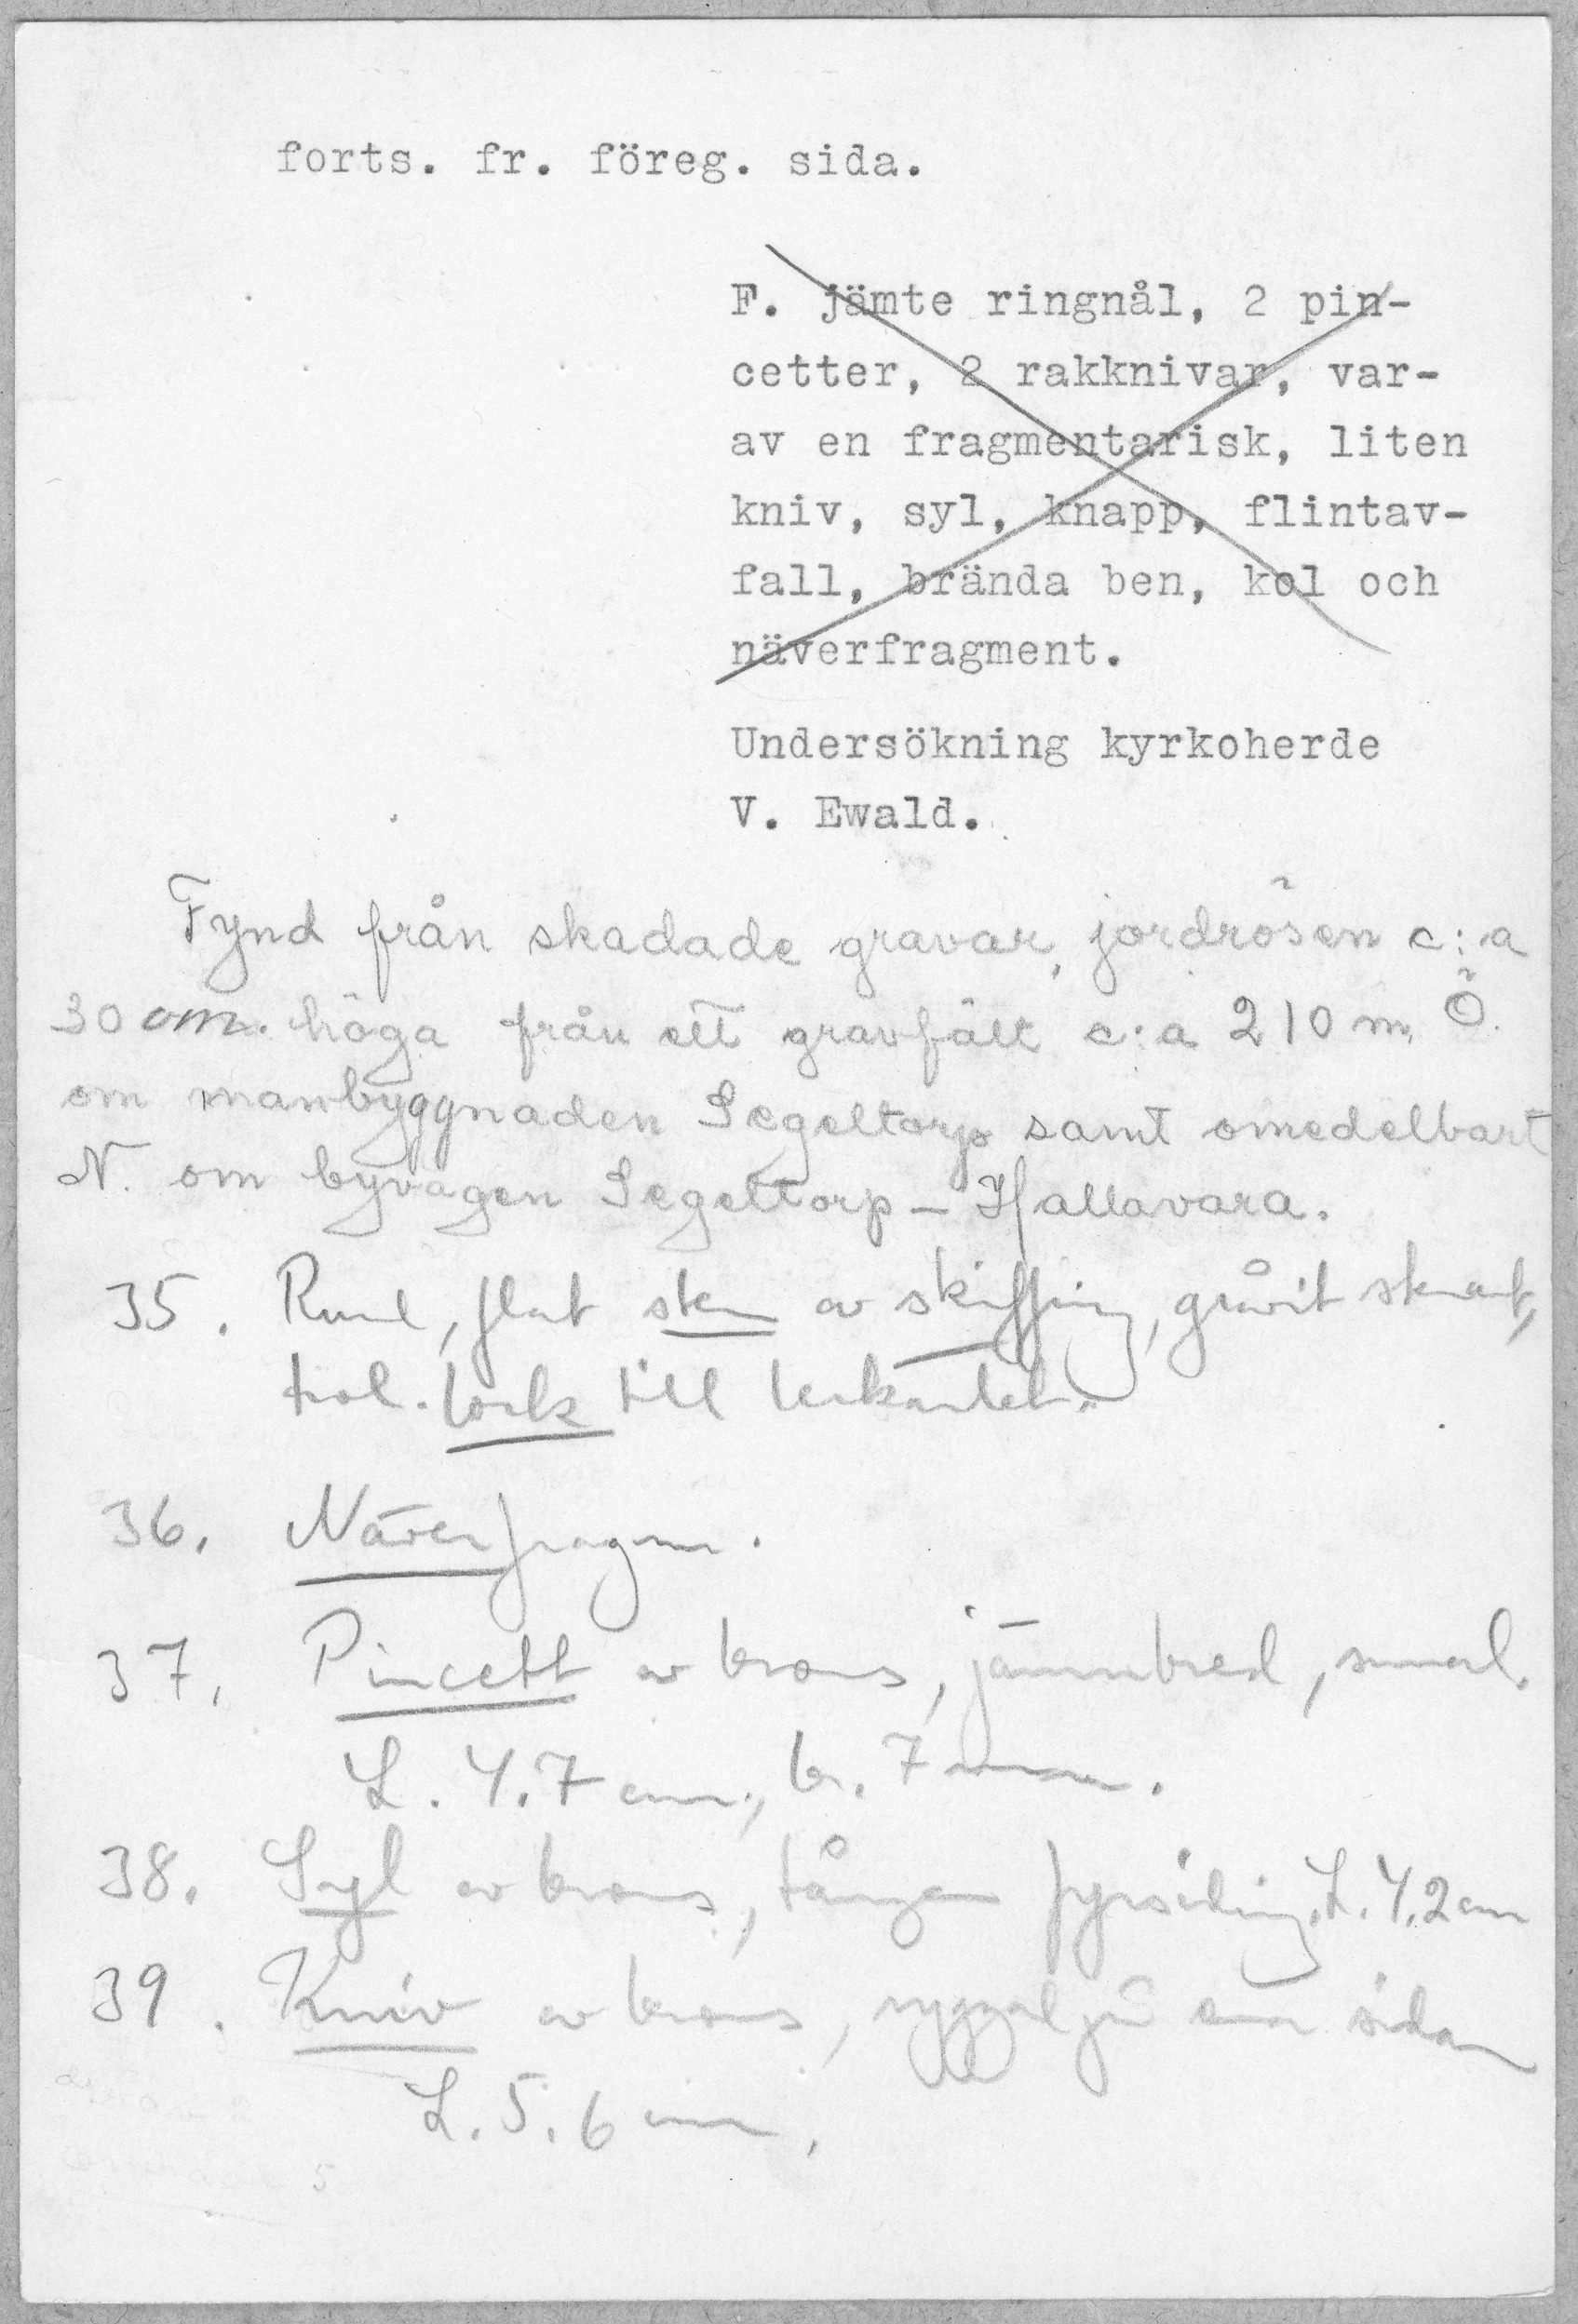 forts. fr. föreg. sida.
F. jämte ringnål, 2 pin-
cetter, 2 rakknivar, var-
av en fragmentarisk, liten
kniv, syl, knapp, flintav-
fall, brända ben, kol och
näverfragment.
Undersökning kyrkoherde
V. Ewald.
Fynd från skadade gravar, jordrösen c:a
30 cm. höga från ett gravfält c:a 210 m. Ö.
om manbyggnaden Segeltorp samt omedelbart
N. om byvägen Segeltorp – Hallavara.
35. Rund, flat sten av skiffrig, gråvit
trol. lock till lerkärlet.
36. Näverfragm.
37. Pincett av brons, jämnbred, smal.
L. 4.7 cm., br. 7 mm.
38. Syl av brons, tången fyrsidig. L. 4.2 cm
39. Kniv av brons, ena sidan
L. 5.6 cm.